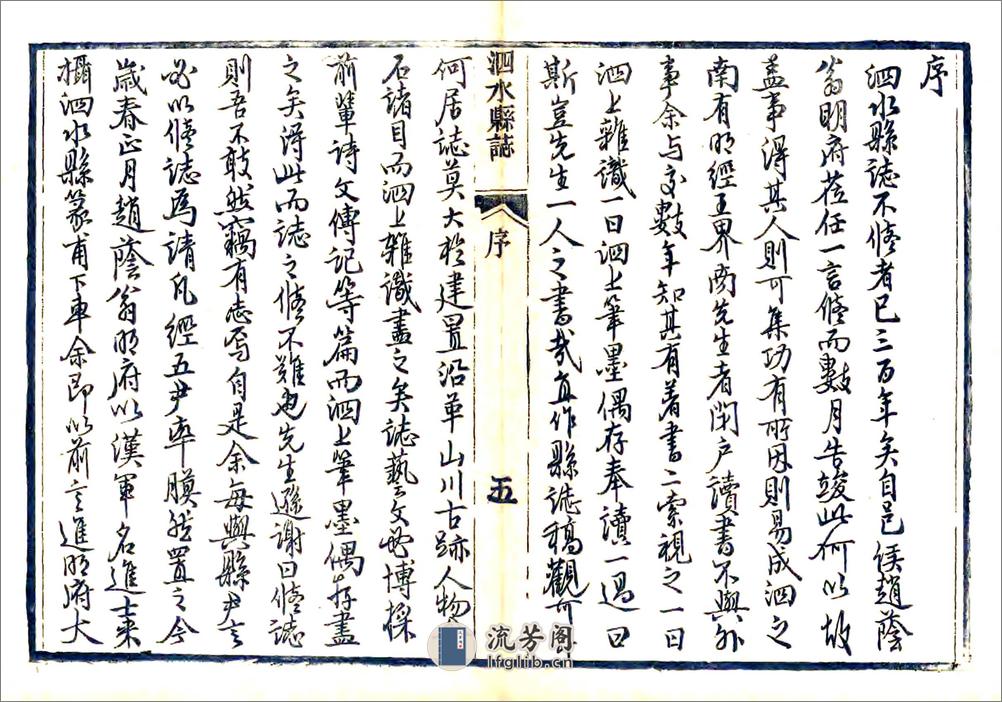 序
泗水縣誌不修者已三百年矣自邑侯趙蔭
翁明府莅任一言修而數月告竣此何以故
蓋事得其人則可集功有所因則易成泗之
南有明經王界西先生者閉户讀書不與外
事余与交數年知其有著書二索視之一曰
泗上雜識一曰泗上筆墨偶存奉讀一過曰
斯豈先生一人之書哉直作縣誌稿觀可
泗水縣誌
序
五
何居誌莫大於建置沿革山川古跡人物
石諸目而泗上雜識盡之矣誌藝文必博採
前輩詩文傳記等篇而泗上筆墨偶存盡
之矣得此而誌之修不難也先生遜謝曰修誌
則吾不敢然竊有志焉自是余每與縣尹言
必以修誌爲請凡經五尹率膜然置之今
歲春正月趙蔭翁明府以漢軍名進士來
攝泗水縣篆甫下車余即以前言進明府大
流芳阁
lfglib.cn